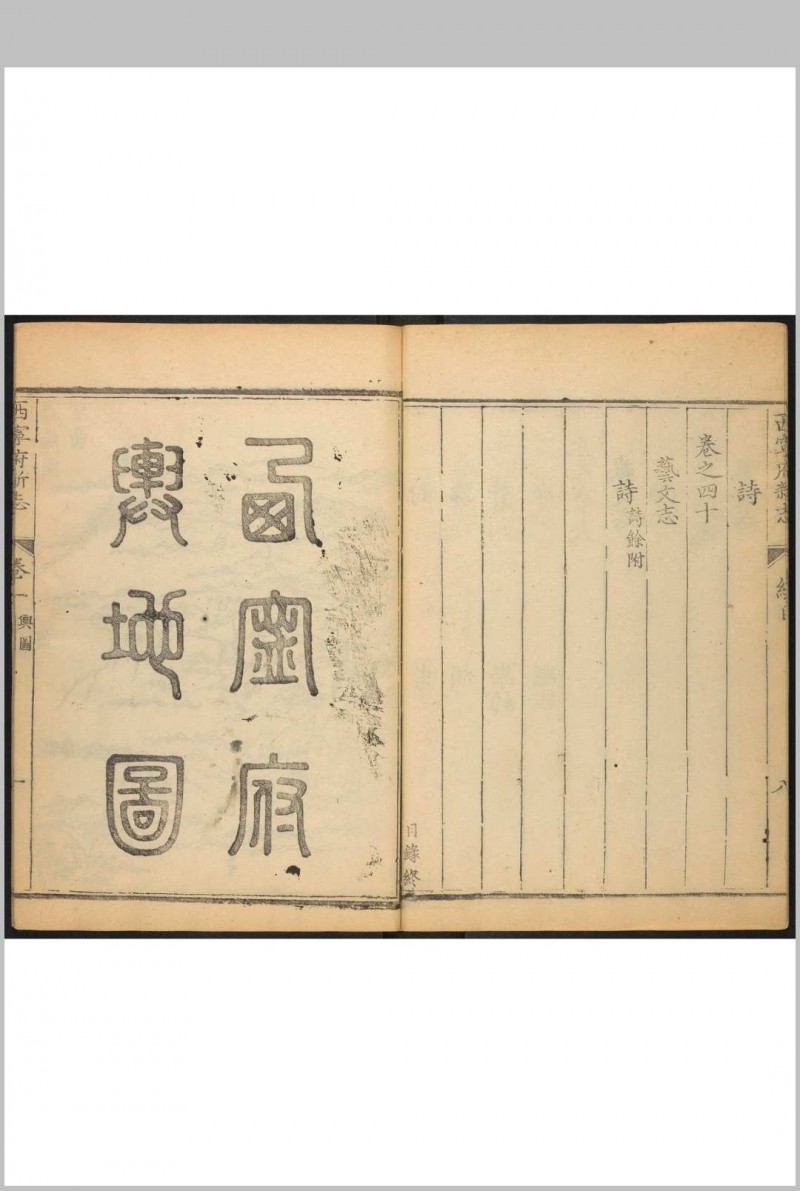 西寧府新志
總目
八
詩
卷之四十
藝文志
詩 詩餘附
目錄終
西寧府
輿地圖
西寧府新志
卷一
輿圖
一